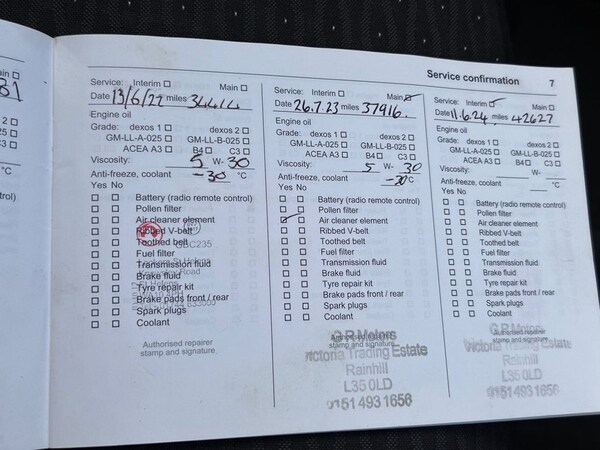 Service confirmation 7
Service: Interim Main
Date 13/6/22 miles 34414
Engine oil
Grade: dexos 1 dexos 2
GM-LL-A-025 GM-LL-B-025
ACEA A3 B4 C3
Viscosity: 5 W- 30
Anti-freeze, coolant -30 °C
Yes No
Battery (radio remote control)
Pollen filter
Air cleaner element
Ribbed V-belt
Toothed belt
Fuel filter
Transmission fluid
Brake fluid
Tyre repair kit
Brake pads front / rear
Spark plugs
Coolant
Authorised repairer
stamp and signature
Service: Interim Main
Date 26.7.23 miles 37916.
Engine oil
Grade: dexos 1 dexos 2
GM-LL-A-025 GM-LL-B-025
ACEA A3 B4 C3
Viscosity: 5 W- 30
Anti-freeze, coolant -30°C
Yes No
Battery (radio remote control)
Pollen filter
Air cleaner element
Ribbed V-belt
Toothed belt
Fuel filter
Transmission fluid
Brake fluid
Tyre repair kit
Brake pads front / rear
Spark plugs
Coolant
Authorised repairer
stamp and signature
G R Motors
Victoria Trading Estate
Rainhill
L35 0LD
0151 493 1656
Service: Interim Main
Date 11.6.24 miles 42627
Engine oil
Grade: dexos 1 dexos 2
GM-LL-A-025 GM-LL-B-025
ACEA A3 B4 C3
Viscosity: W-
Anti-freeze, coolant °C
Yes No
Battery (radio remote control)
Pollen filter
Air cleaner element
Ribbed V-belt
Toothed belt
Fuel filter
Transmission fluid
Brake fluid
Tyre repair kit
Brake pads front / rear
Spark plugs
Coolant
Authorised repairer
stamp and signature
G R Motors
Victoria Trading Estate
Rainhill
L35 0LD
0151 493 1656